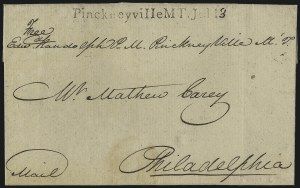 PinckneyvilleM T. Jul 13
Free
Edw Randolph P. M. PinckneyVille M. T.
Mr. Mathew Carey
Philadelphia
Mail